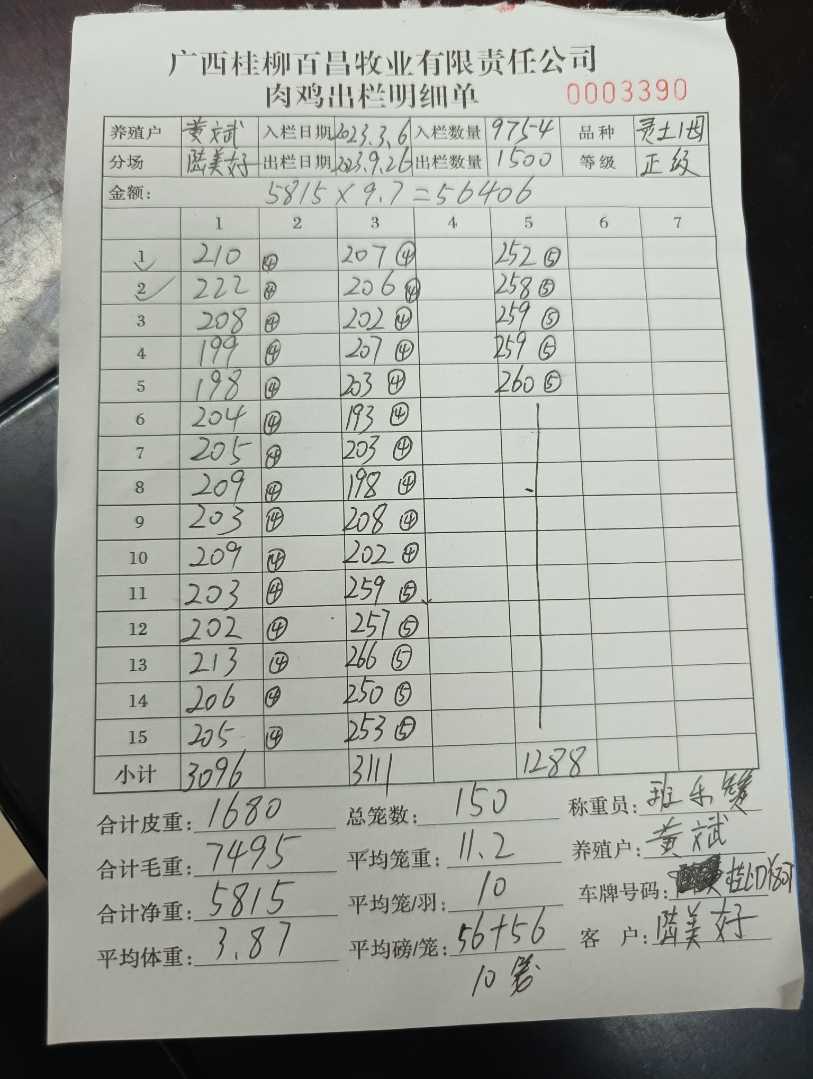 广西桂柳百昌牧业有限责任公司
肉鸡出栏明细单 0003390
养殖户 黄斌 入栏日期 2023.3.6 入栏数量 9754 品种 灵土1
分场 陆美好 出栏日期 2023.9.26 出栏数量 1500 等级 正级
金额: 5815×9.7=56406
1 2 3 4 5 6 7
1 210 ④ 207 ④ 252 ⑤
2 222 ④ 206 ④ 258 ⑤
3 208 ④ 202 ④ 259 ⑤
4 199 ④ 207 ④ 259 ⑤
5 198 ④ 203 ④ 260 ⑤
6 204 ④ 193 ④
7 205 ④ 203 ④
8 209 ④ 198 ④
9 203 ④ 208 ④
10 209 ④ 202 ④
11 203 ④ 259 ⑤
12 202 ④ 257 ⑤
13 213 ④ 266 ⑤
14 206 ④ 250 ⑤
15 205 ④ 253 ⑤
小计 3096 3111 1288
合计皮重: 1680 总笼数: 150 称重员: 班乐
合计毛重: 7495 平均笼重: 11.2 养殖户: 黄斌
合计净重: 5815 平均笼/羽: 10 车牌号码: 桂
平均体重: 3.87 平均磅/笼: 56+56 客户: 陆美好
10笼